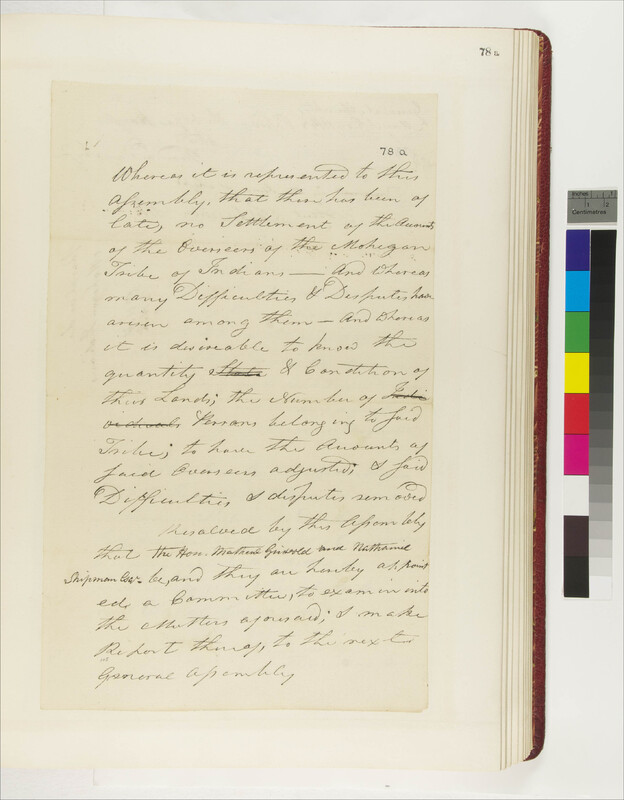 78a
78 a
Whereas it is represented to this
Assembly, that there has been of
late, no Settlement of the Accounts
of the Overseers of the Mohegan
Tribe of Indians — And Whereas
many Difficulties & Disputes have
arisen among them — And Whereas
it is desireable to know the
quantity State & Condition of
their Lands; the Number of Indi
viduals Persons belonging to said
Tribe; to have the Accounts of
said Overseers adjusted; & said
Difficulties & disputes removed
Resolved by this Assembly
that the Hon. Matthew Griswold and Nathaniel
Shipman Esqr. be, and they are hereby appoint
ed a Committee, to examine into
the Matters aforesaid; & make
Report thereof, to the next
General Assembly
Inches
1 2
Centimetres